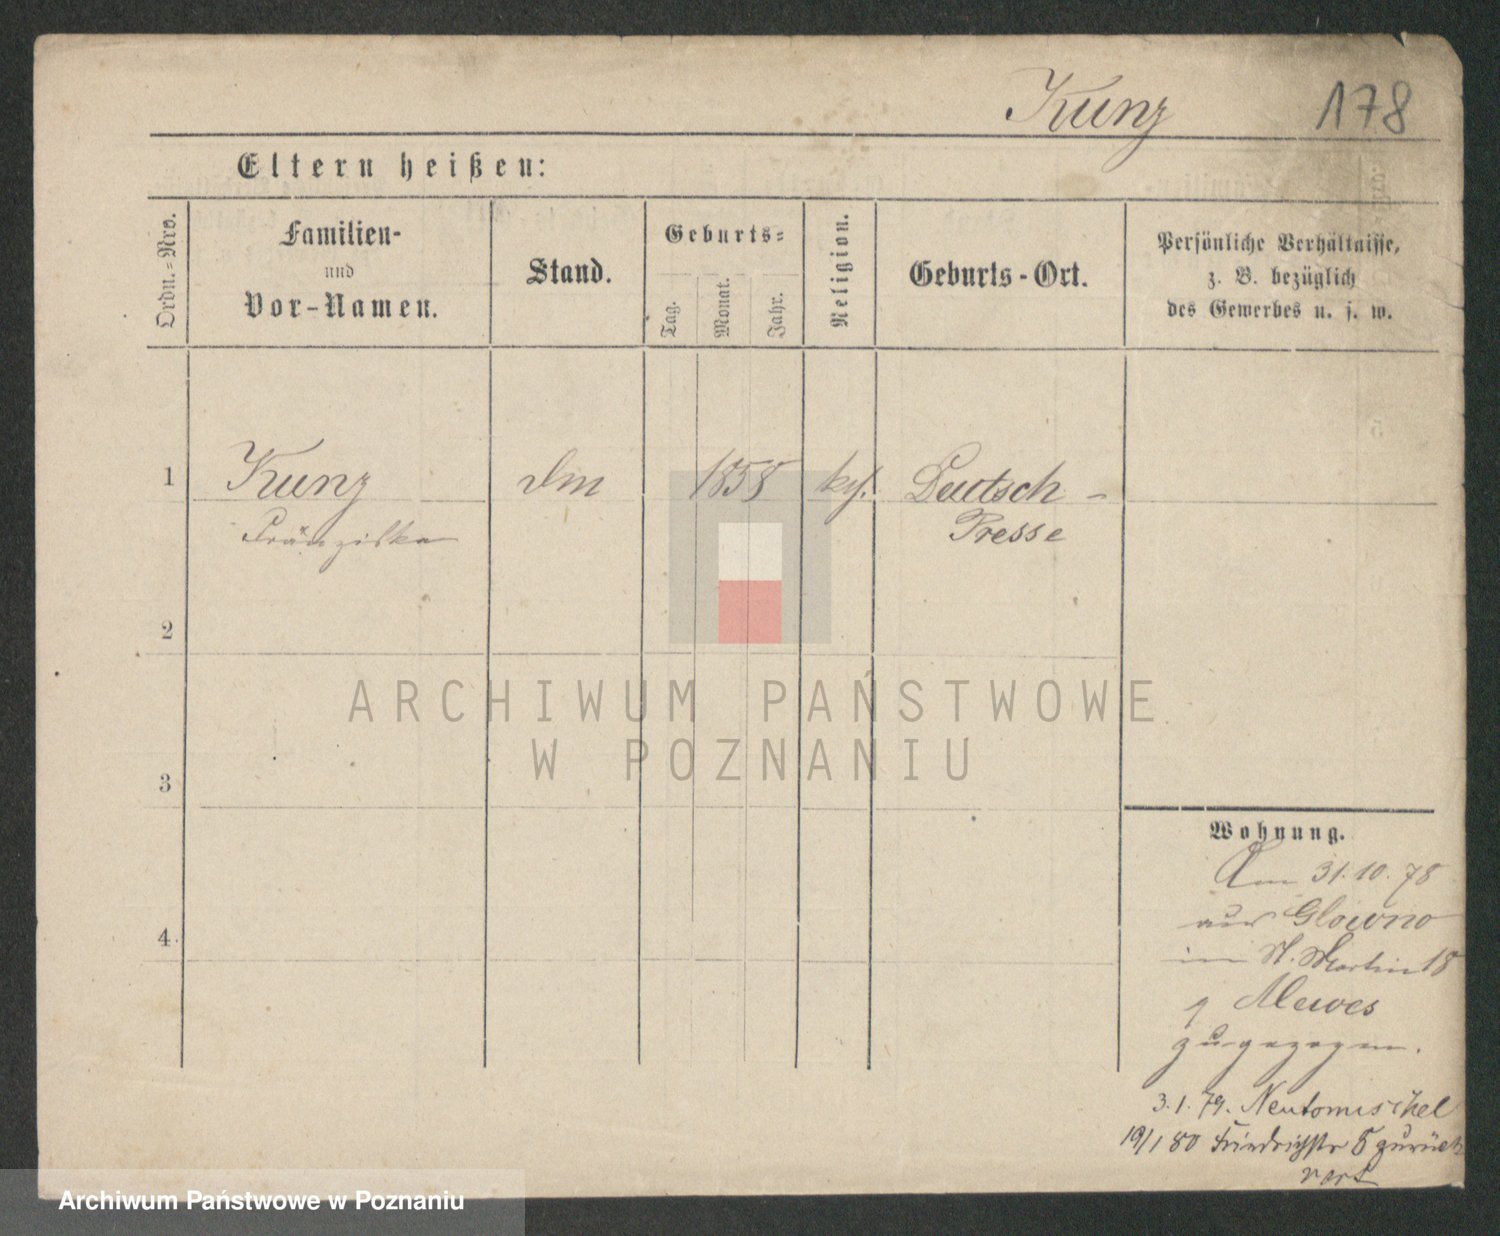 Kunz
178
Eltern heißen:
Ordn.=Nro.
Familien-
und
Vor-Namen.
Stand.
Geburts=
Tag.
Monat.
Jahr.
Religion.
Geburts-Ort.
Persönliche Verhältnisse,
z. B. bezüglich
des Gewerbes u. s. w.
1
Kunz
Dm
1858
Deutsch -
Franziska
Presse
2
ARCHIWUM PAŃSTWOWE
W POZNANIU
3
Wohnung.
Am 31.10.78
aus Glowno
in St. Martin 18
Mewes
4
zugezogen.
3.1.79. Neutomischel
19/1 80 Friedrichstr 5 zurück
Archiwum Państwowe w Poznaniu